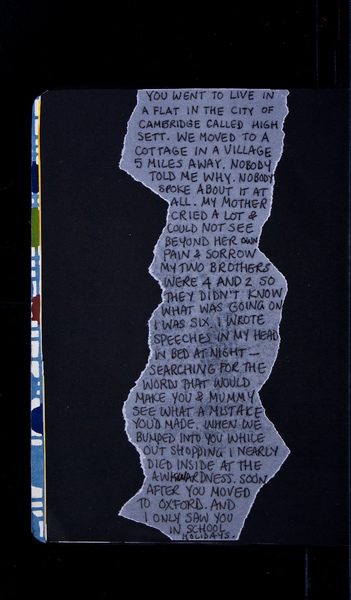 YOU WENT TO LIVE IN
A FLAT IN THE CITY OF
CAMBRIDGE CALLED HIGH
SETT. WE MOVED TO A
COTTAGE IN A VILLAGE
5 MILES AWAY. NOBODY
TOLD ME WHY. NOBODY
SPOKE ABOUT IT AT
ALL. MY MOTHER
CRIED A LOT &
COULD NOT SEE
BEYOND HER OWN
PAIN & SORROW
MY TWO BROTHERS
WERE 4 AND 2 SO
THEY DIDN'T KNOW
WHAT WAS GOING ON
I WAS SIX. I WROTE
SPEECHES IN MY HEAD
IN BED AT NIGHT —
SEARCHING FOR THE
WORDS THAT WOULD
MAKE YOU & MUMMY
SEE WHAT A MISTAKE
YOU'D MADE. WHEN WE
BUMPED INTO YOU WHILE
OUT SHOPPING I NEARLY
DIED INSIDE AT THE
AWKWARDNESS. SOON
AFTER YOU MOVED
TO OXFORD. AND
I ONLY SAW YOU
IN SCHOOL
HOLIDAYS.